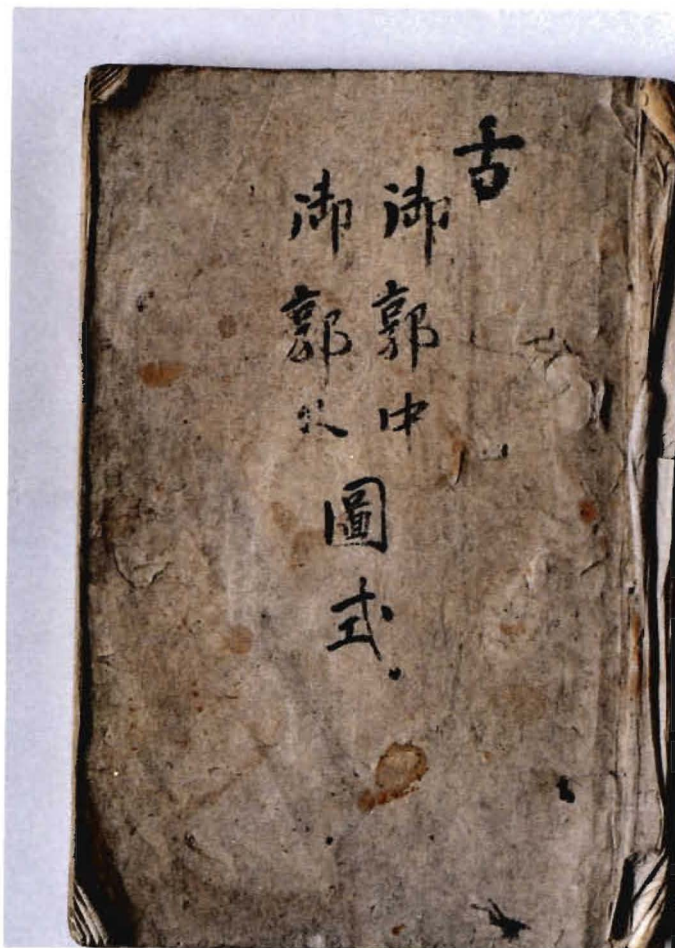 古
御郭中
御郭外
圖式